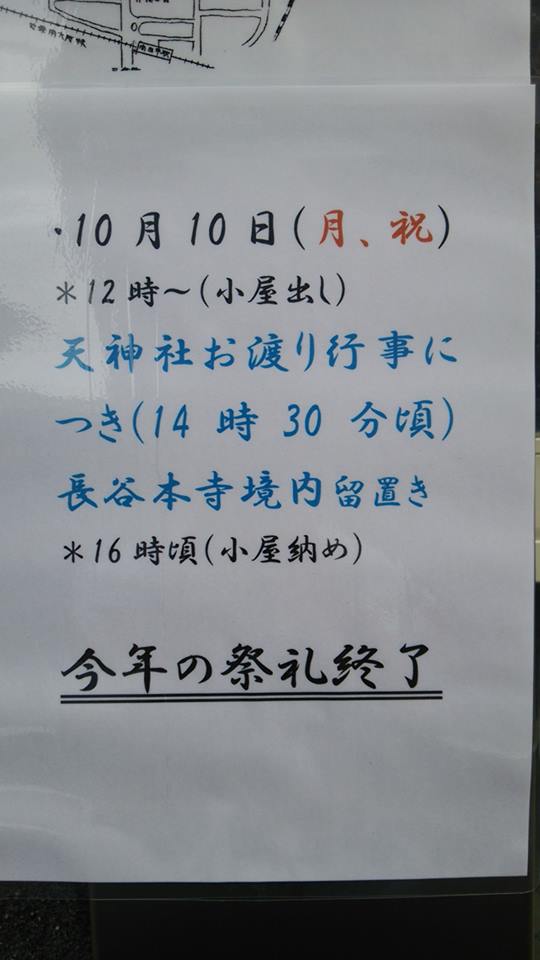 ・10月10日(月、祝)
＊12時～(小屋出し)
天神社お渡り行事に
つき(14時30分頃)
長谷本寺境内留置き
＊16時頃(小屋納め)
今年の祭礼終了